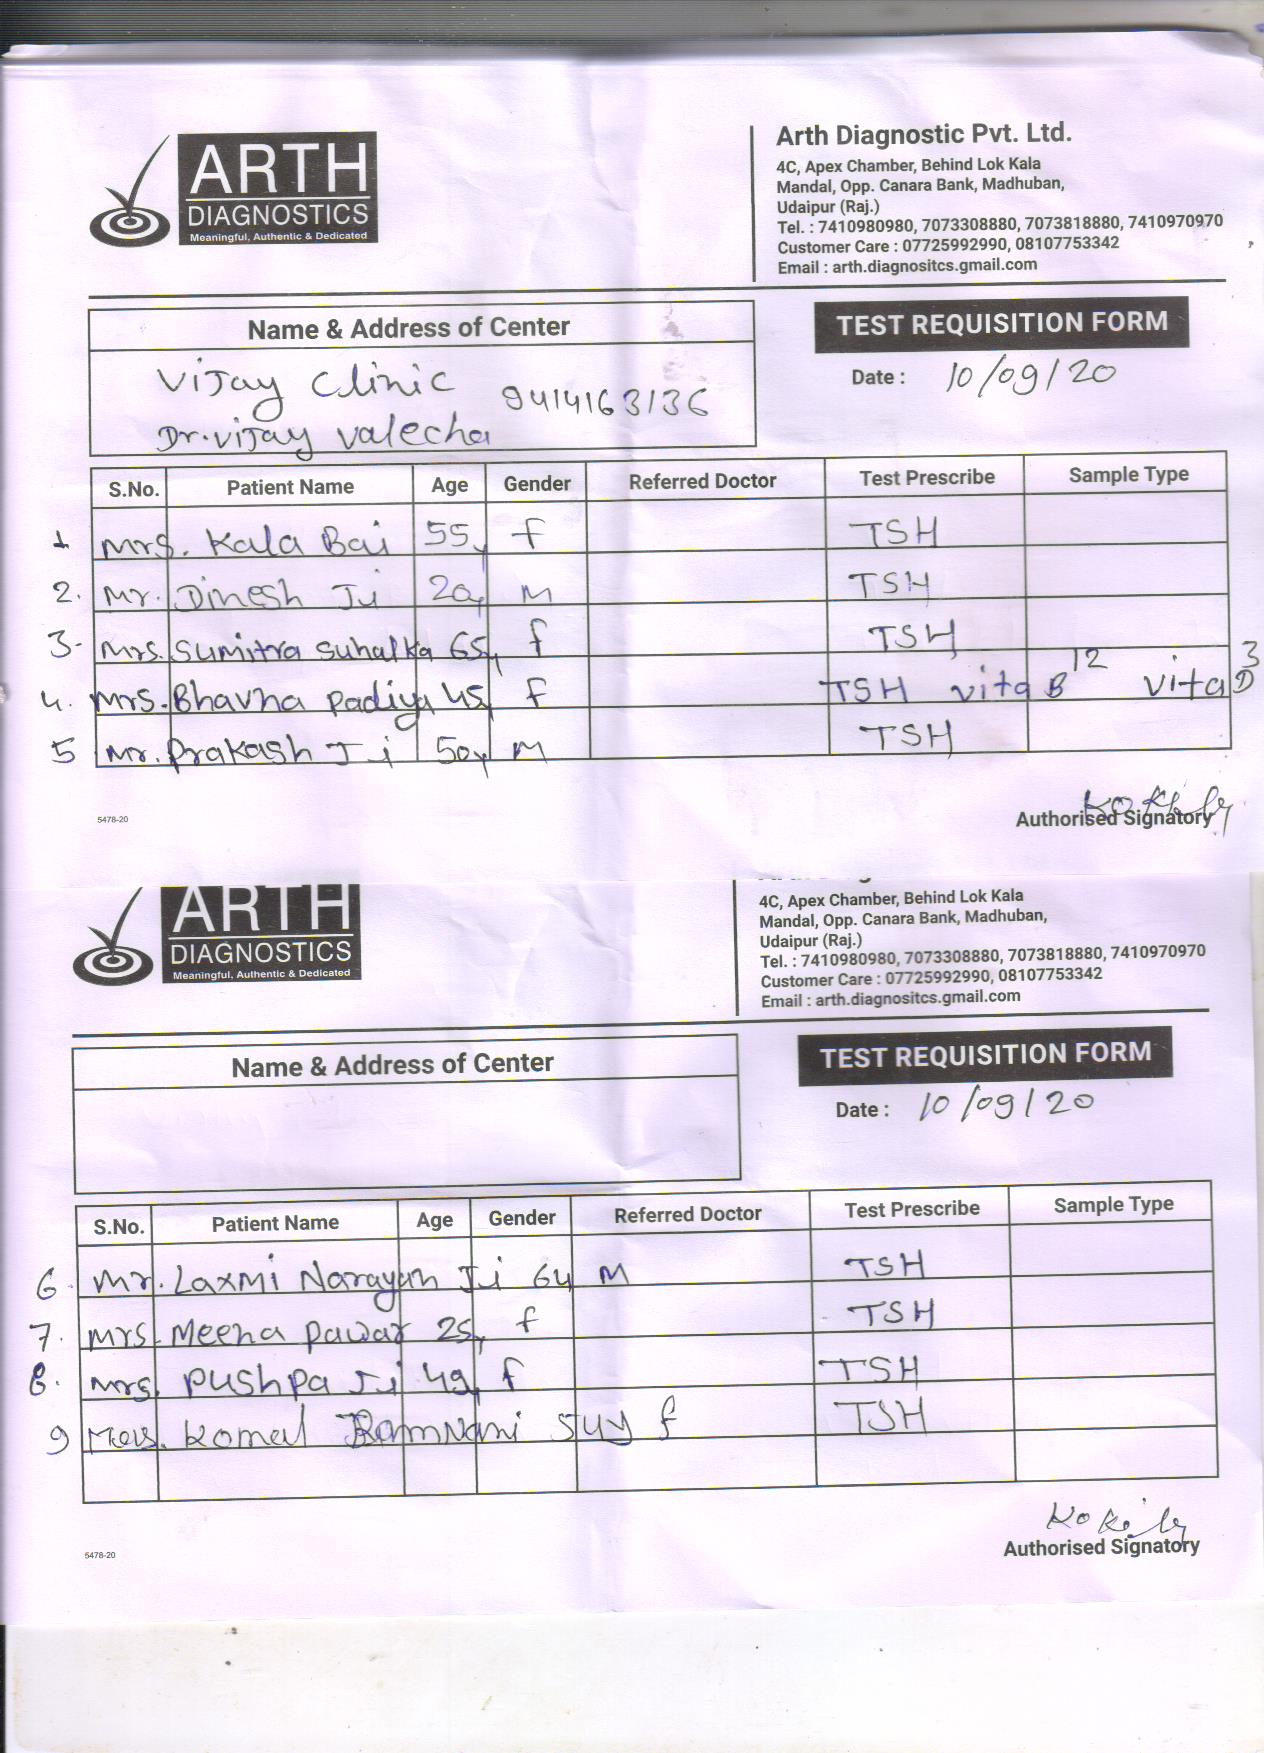 ARTH
DIAGNOSTICS
Meaningful, Authentic & Dedicated
Arth Diagnostic Pvt. Ltd.
4C, Apex Chamber, Behind Lok Kala
Mandal, Opp. Canara Bank, Madhuban,
Udaipur (Raj.)
Tel. : 7410980980, 7073308880, 7073818880, 7410970970
Customer Care : 07725992990, 08107753342
Email : arth.diagnositcs.gmail.com
Name & Address of Center
Vijay Clinic 9414163136
Dr. Vijay Valecha
TEST REQUISITION FORM
Date : 10/09/20
S.No. Patient Name Age Gender Referred Doctor Test Prescribe Sample Type
1 Mrs. Kala Bai 55y f TSH
2. Mr. Dinesh Ji 20y M TSH
3- Mrs. Sumitra Suhalka 65y f TSH
4. Mrs. Bhavna Padiya 45y f TSH vita B12 vita D3
5 Mr. Prakash Ji 50y M TSH
5478-20
Authorised Signatory
ARTH
DIAGNOSTICS
Meaningful, Authentic & Dedicated
4C, Apex Chamber, Behind Lok Kala
Mandal, Opp. Canara Bank, Madhuban,
Udaipur (Raj.)
Tel. : 7410980980, 7073308880, 7073818880, 7410970970
Customer Care : 07725992990, 08107753342
Email : arth.diagnositcs.gmail.com
Name & Address of Center
TEST REQUISITION FORM
Date : 10/09/20
S.No. Patient Name Age Gender Referred Doctor Test Prescribe Sample Type
6. Mr. Laxmi Narayan Ji 64 M TSH
7. Mrs. Meena Pawar 25y f TSH
8. Mrs. Pushpa Ji 49y f TSH
9 Mrs. Komal Ramnani 54y f TSH
5478-20
Authorised Signatory